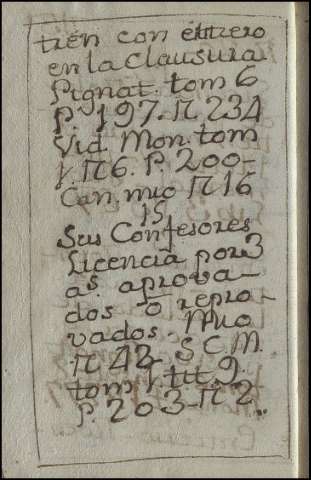 tren con entrero
en la Clausura
Pignat. tom 6
P. 197. n 234
Vid. Mon. tom
1. n 6. P. 200-
Can. mio n 16
15
Sus Confesores
Licencia por 3
as. aprova-
dos ō repro-
vados. Muo
n 42. S. C. M.
tom 1. tit 9.
P. 203- n 2.